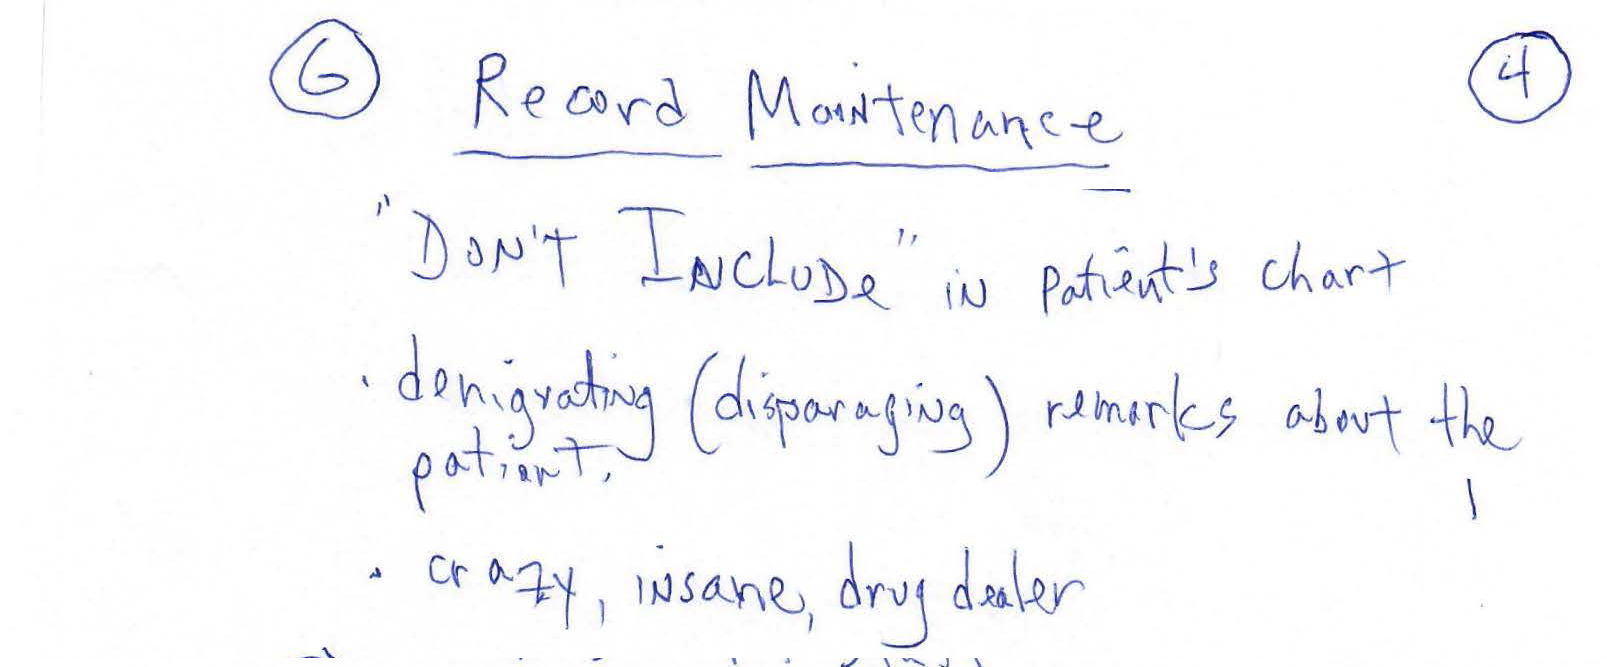 6 Record Maintenance 4
"DON'T INCLUDE" in patient's chart
· denigrating (disparaging) remarks about the
patient.
· crazy, insane, drug dealer